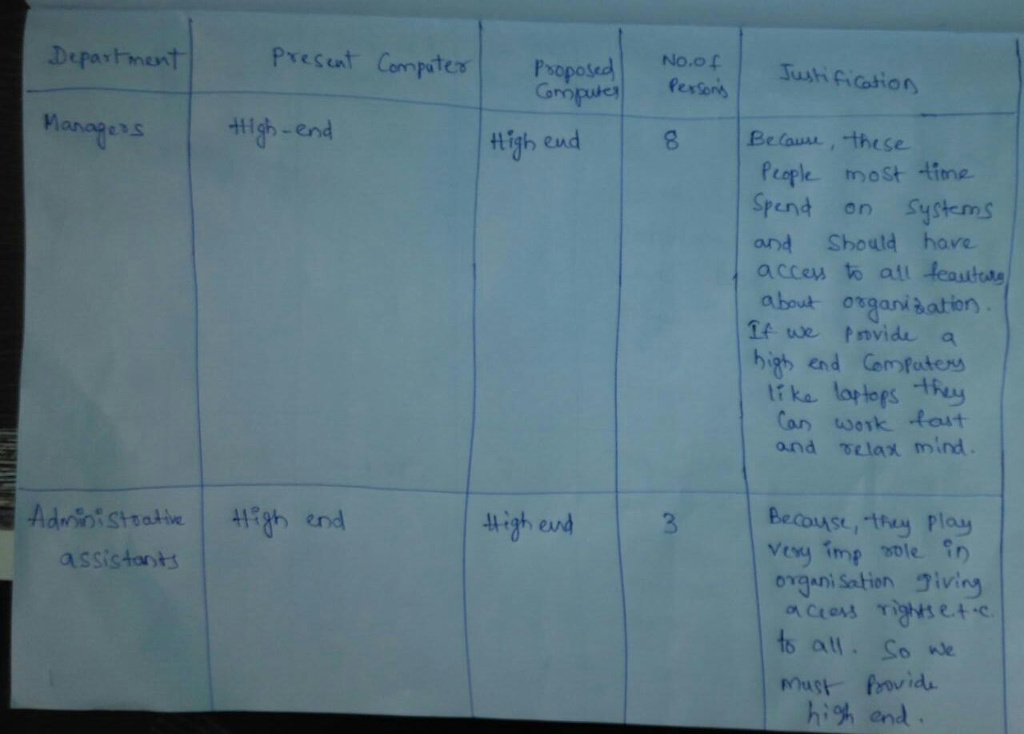 Department Present Computer Proposed Computer No.of Persons Justification
Managers High-end High end 8 Because, these
People most time
Spend on systems
and should have
access to all feautures
about organization.
If we Provide a
high end Computers
like laptops they
Can work fast
and relax mind.
Administrative assistants High end High end 3 Because, they play
very imp role in
organisation giving
access rights e.t.c.
to all. So we
must Provide
high end.